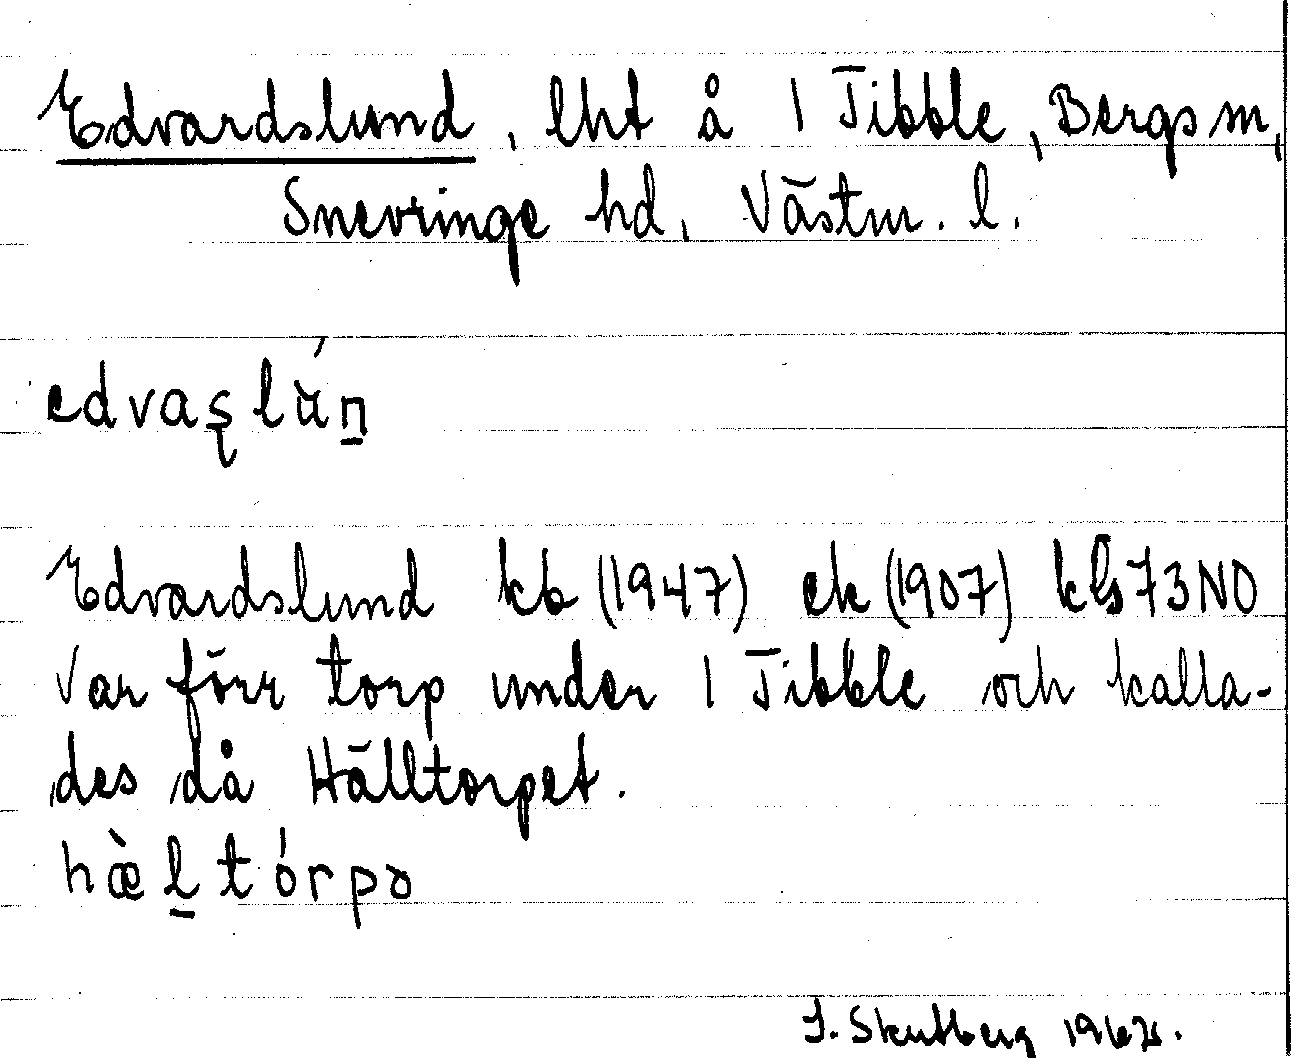 Edvardslund, lht å 1 Tibble, Bergs sn,
Snevringe hd, Västm. l.
edvaʂlún̲
Edvardslund kb (1947) ek (1907) kbs 73NO
Var förr torp under 1 Tibble och kalla-
des då Hälltorpet.
hæ̀l̲tórpə
Skutberg